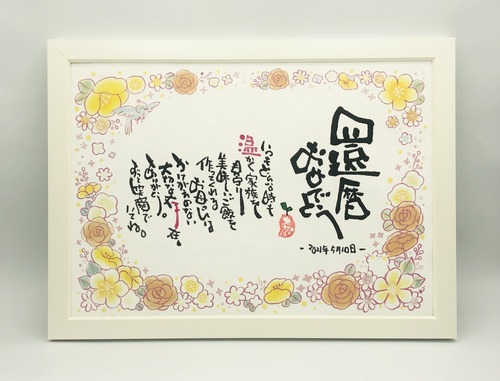 還暦
おめでとう
- 2021年5月10日 -
いつもどんな時も
温かく家族を
見守り
美味しいご飯を
作ってくれる
お母さんは
かけがえのない
大切な存在。
ありがとう。
いてね。